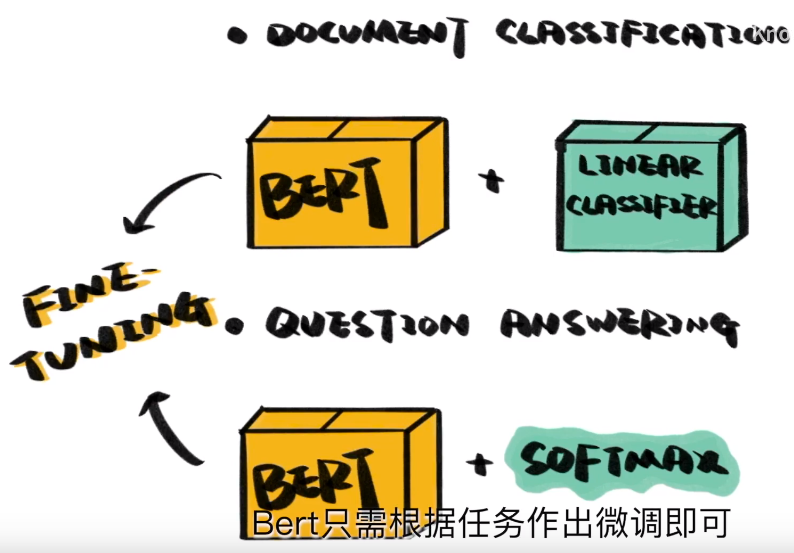 • DOCUMENT CLASSIFICATION
kro
BERT
+
LINEAR
CLASSIFIER
FINE-
TUNING
• QUESTION ANSWERING
BERT
+
SOFTMAX
Bert只需根据任务作出微调即可